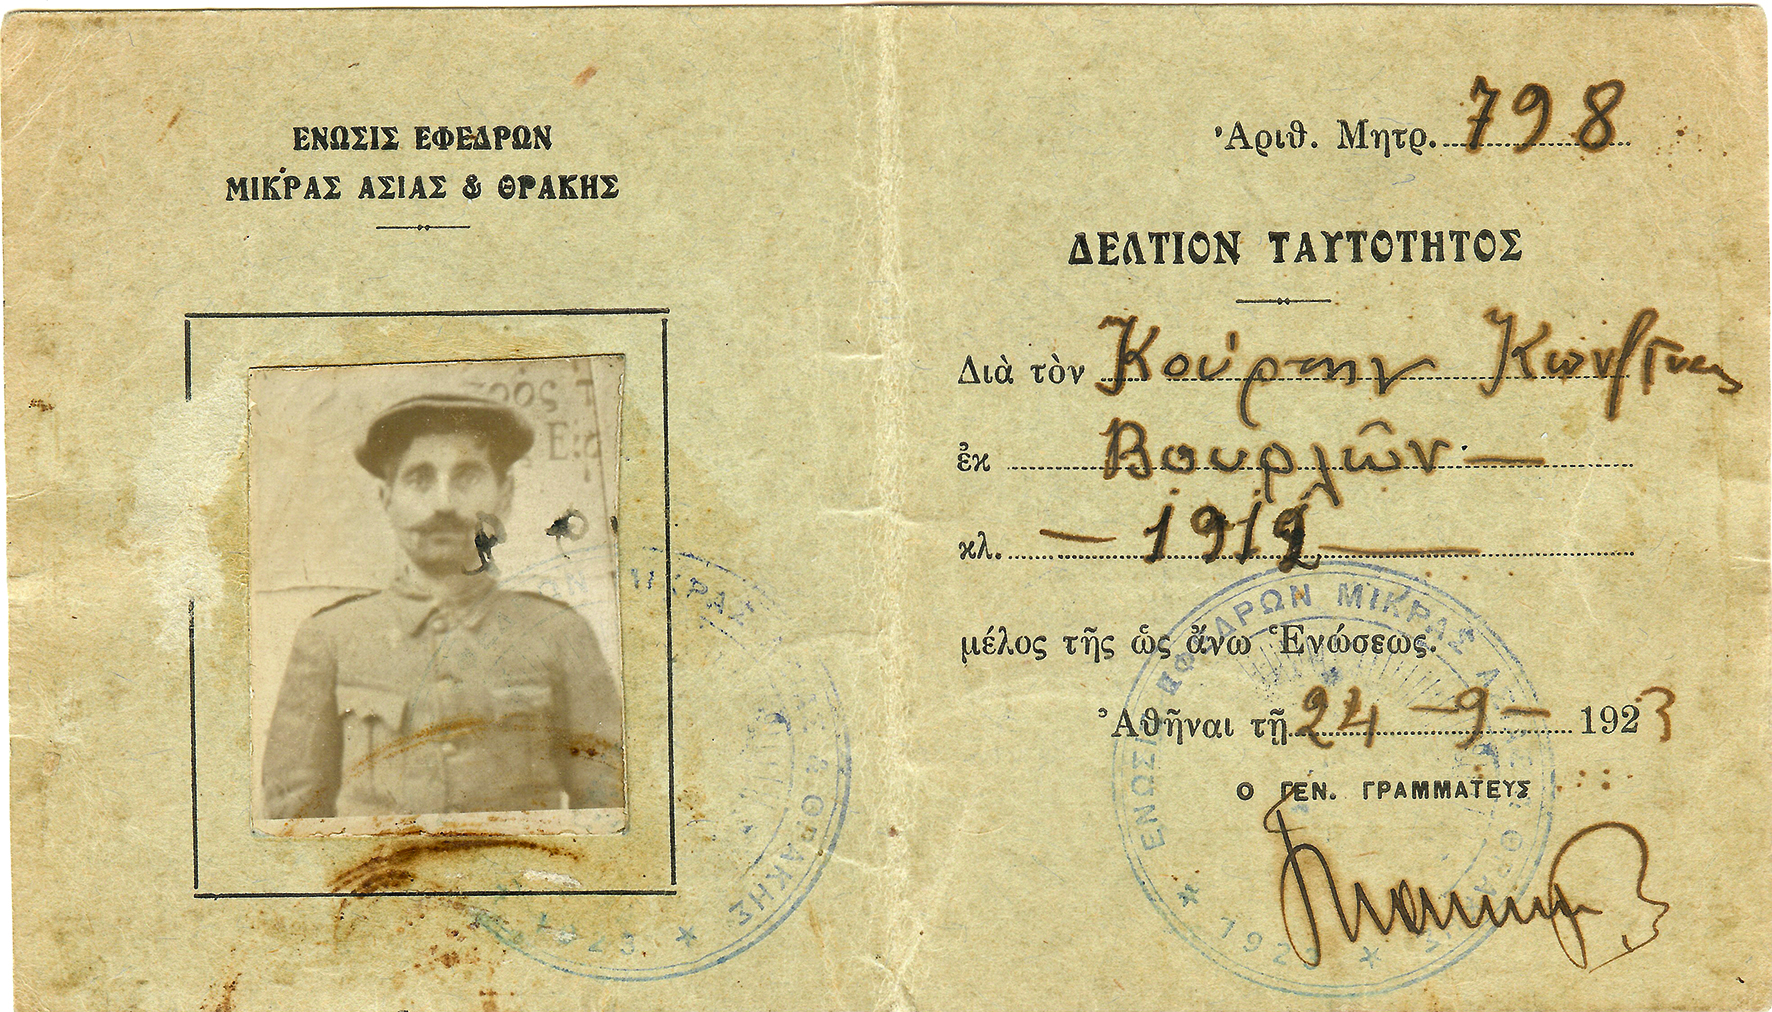 ΕΝΩΣΙΣ ΕΦΕΔΡΩΝ
ΜΙΚΡΑΣ ΑΣΙΑΣ & ΘΡΑΚΗΣ
Ἀριθ. Μητρ. 798
ΔΕΛΤΙΟΝ ΤΑΥΤΟΤΗΤΟΣ
Διὰ τὸν Κούρτην
ἐκ Βουρλῶν
κλ. — 1912
μέλος τῆς ὡς ἄνω Ἑνώσεως.
Ἀθῆναι τῇ 24 - 9 - 1923
Ο ΓΕΝ. ΓΡΑΜΜΑΤΕΥΣ
ΕΝΩΣΙΣ ΕΦΕΔΡΩΝ ΜΙΚΡΑΣ ΑΣΙΑΣ & ΘΡΑΚΗΣ
ΜΙΚΡΑΣ ΑΣΙΑΣ & ΘΡΑΚΗΣ
1923